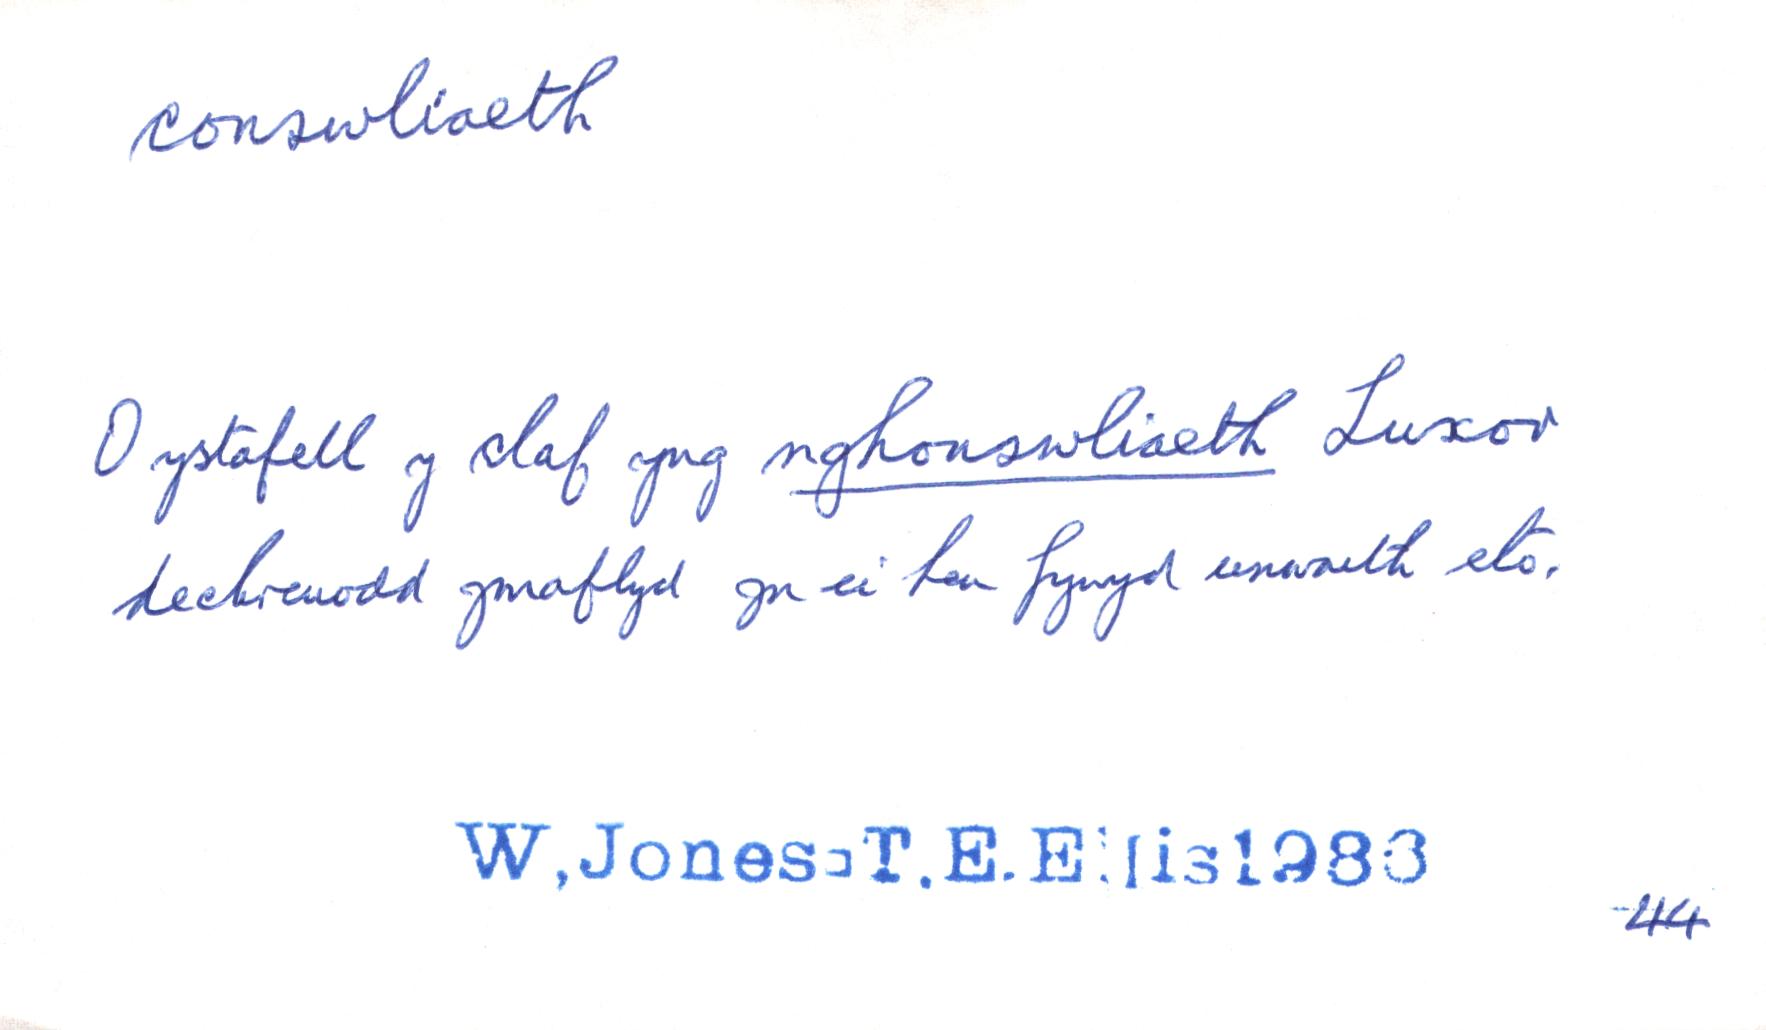 conswliaeth
O ystafell y claf yng nghonswliaeth Luxor
dechreuodd ymaflyd yn ei hen fywyd unwaith eto.
W. Jones: T.E. Ellis 1986
44